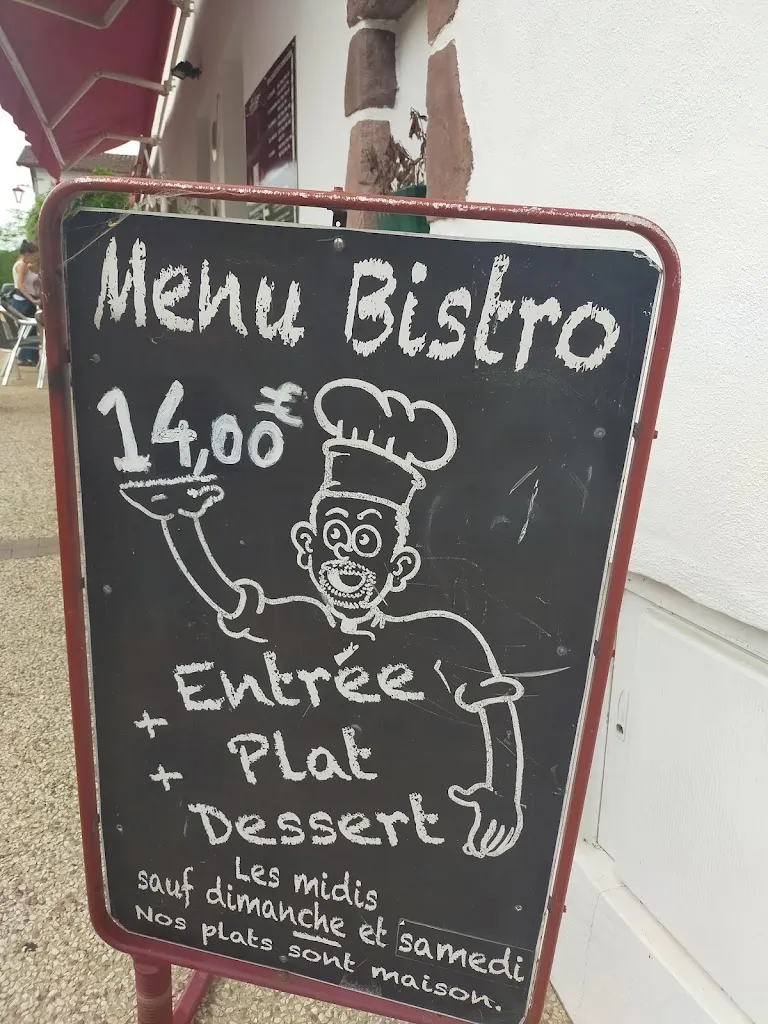 Menu Bistro
14,00€
Entrée
+ Plat
+ Dessert
Les midis
sauf dimanche et samedi
Nos plats sont maison.